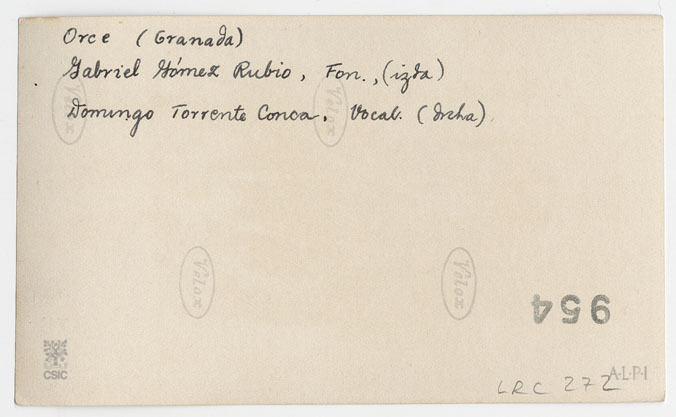 Orce (Granada)
Gabriel Gómez Rubio, Fon., (izda)
Domingo Torrente Conca, Vocab. (drcha).
Velox
Velox
Velox
Velox
954
CSIC
LRC 272
A·L·P·I